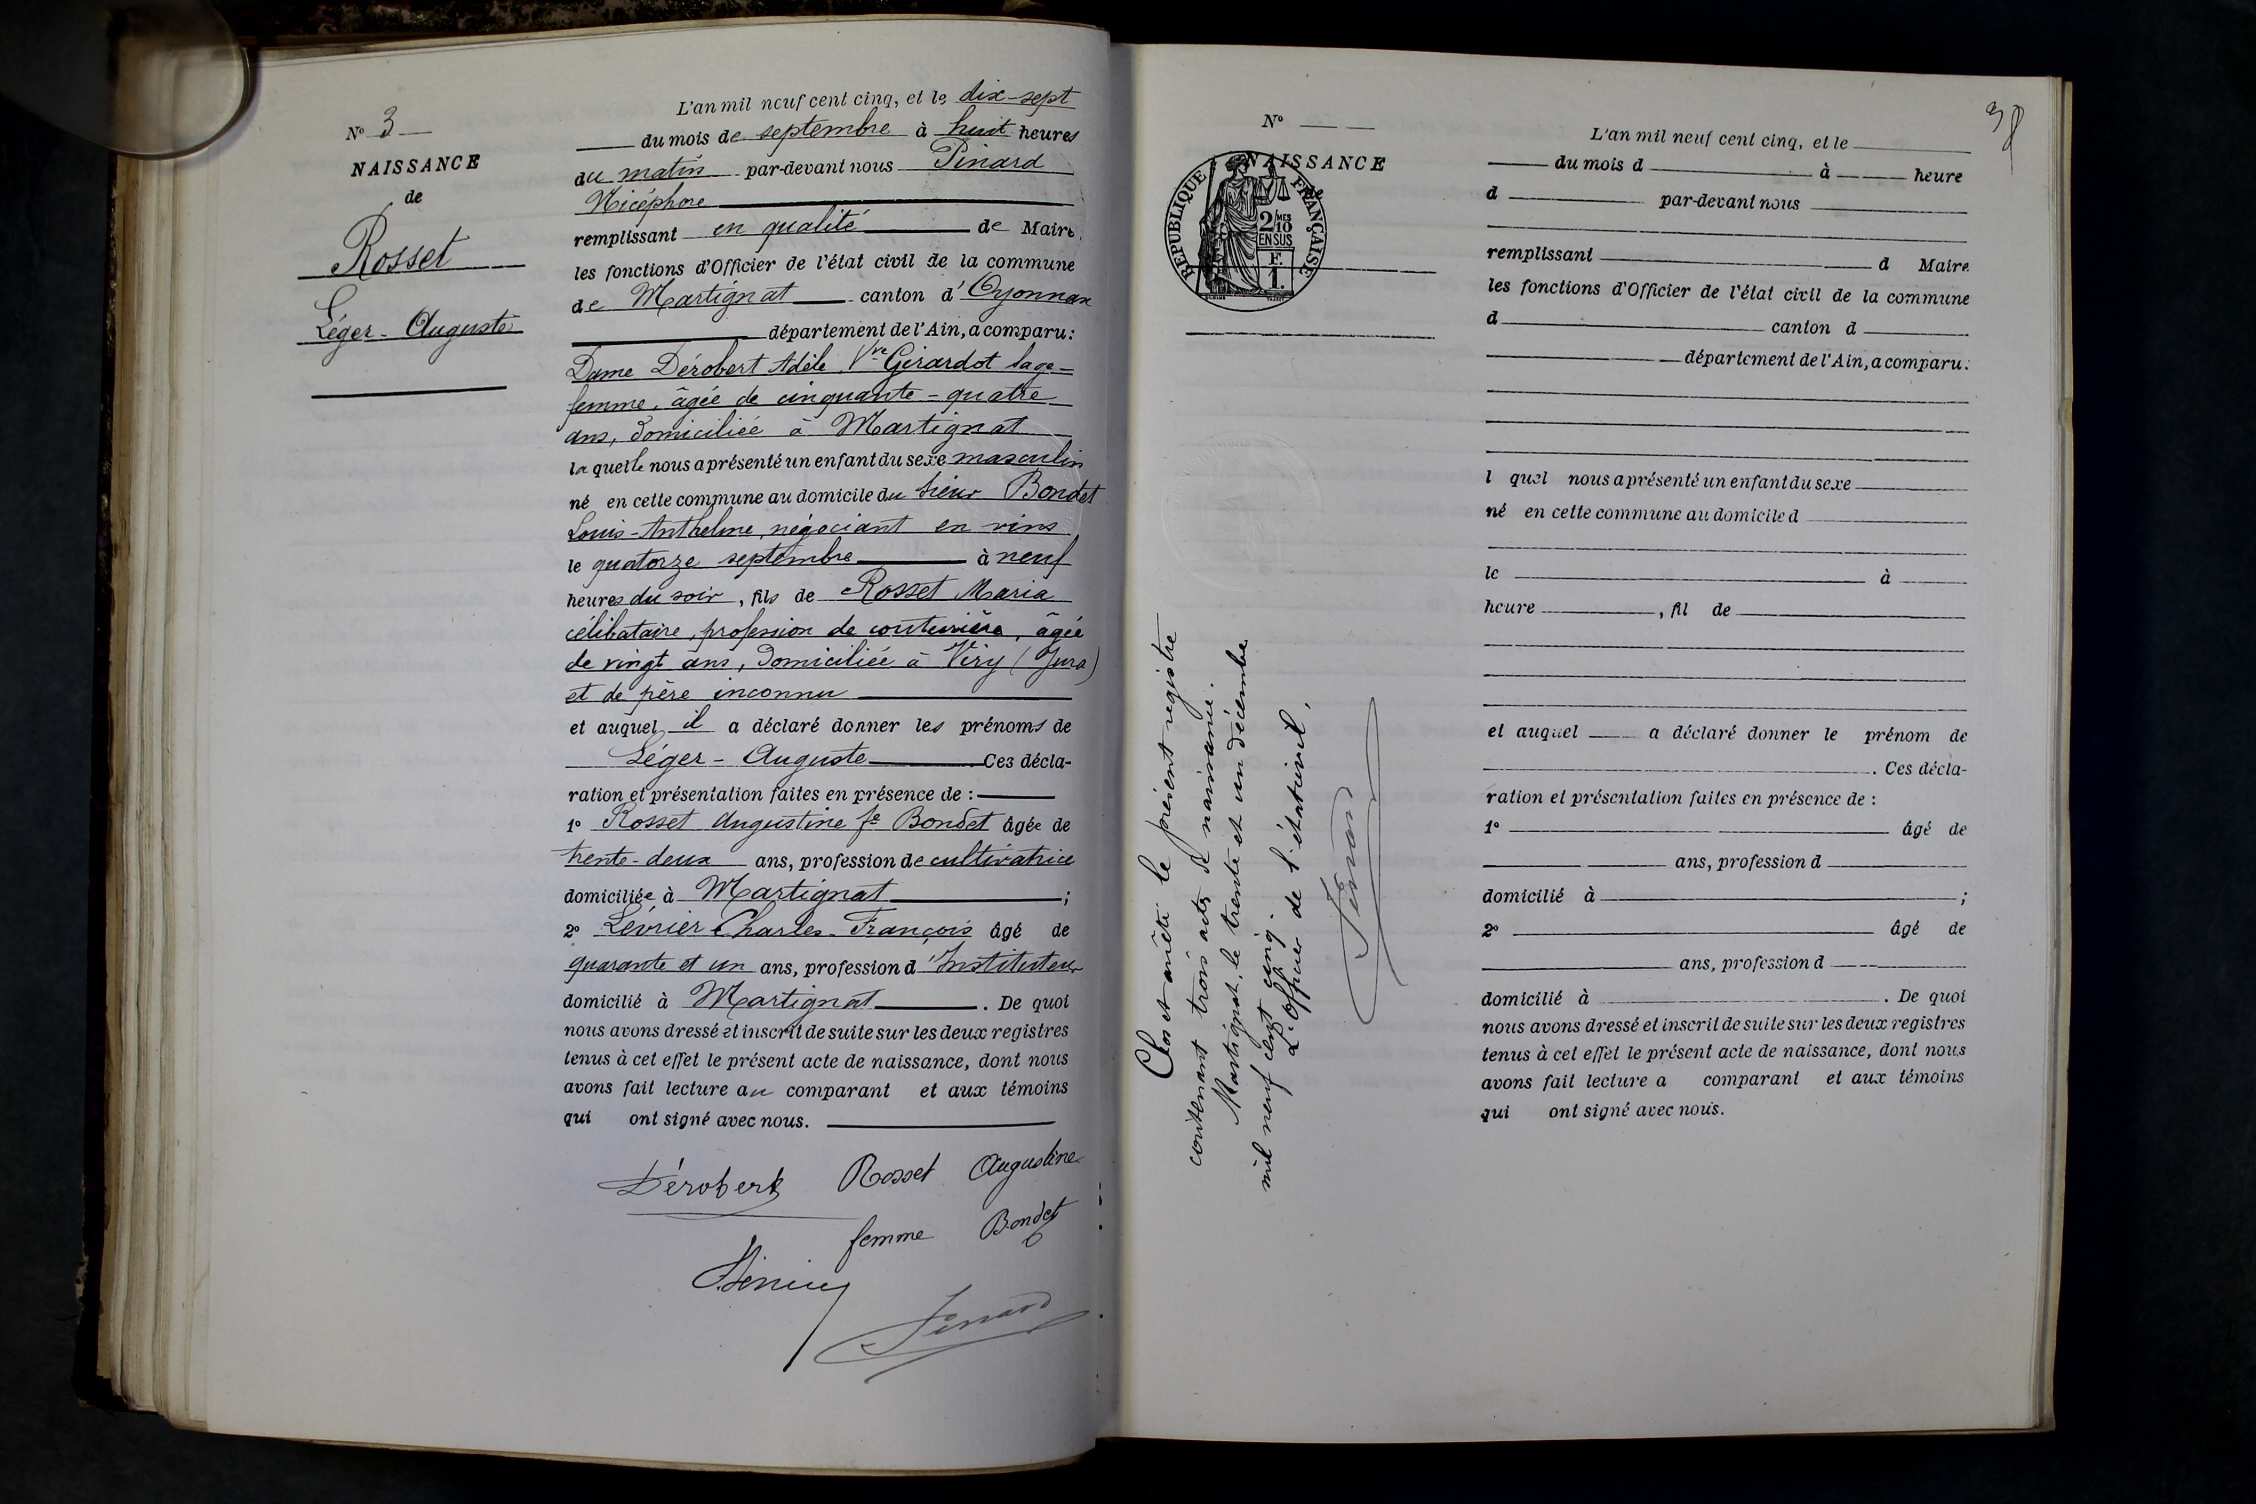 N° 3
NAISSANCE
de
Rosset
Léger - Auguste
L'an mil neuf cent cinq, et le dix-sept
du mois de septembre à huit heures
du matin par-devant nous Pinard
Nicéphore
remplissant en qualité de Maire
les fonctions d'Officier de l'état civil de la commune
de Martignat canton d'Oyonnax
département de l'Ain, a comparu :
Dame Dérobert Adèle Vve Girardot sage=
femme, âgée de cinquante-quatre
ans, domiciliée à Martignat
laquelle nous a présenté un enfant du sexe masculin
né en cette commune au domicile du sieur Bondet
Louis-Anthelme, négociant en vins
le quatorze septembre à neuf
heures du soir, fils de Rosset Maria
célibataire, profession de couturière, âgée
de vingt ans, domiciliée à Viry (Jura)
et de père inconnu
et auquel il a déclaré donner les prénoms de
Léger - Auguste Ces décla-
ration et présentation faites en présence de :
1° Rosset Augustine fe Bondet âgée de
trente-deux ans, profession de cultivatrice
domiciliée à Martignat ;
2° Lévrier Charles-François âgé de
quarante et un ans, profession d'Instituteur
domicilié à Martignat . De quoi
nous avons dressé et inscrit de suite sur les deux registres
tenus à cet effet le présent acte de naissance, dont nous
avons fait lecture au comparant et aux témoins
qui ont signé avec nous.
Dérobert Rosset Augustine
femme Bondet
Pinard
N°
NAISSANCE
RÉPUBLIQUE FRANÇAISE
2/10 MES
EN SUS
F.
1.
Clos et arrêté le présent registre
contenant trois actes de naissance.
Martignat, le trente et un décembre
mil neuf cent cinq.
L'Officier de l'état civil,
Pinard
38
L'an mil neuf cent cinq, et le
du mois d à heure
d par-devant nous
remplissant d Maire
les fonctions d'Officier de l'état civil de la commune
d canton d
département de l'Ain, a comparu :
l quel nous a présenté un enfant du sexe
né en cette commune au domicile d
le à
heure , fil de
et auquel a déclaré donner le prénom de
. Ces décla-
ration et présentation faites en présence de :
1° âgé de
ans, profession d
domicilié à ;
2° âgé de
ans, profession d
domicilié à . De quoi
nous avons dressé et inscrit de suite sur les deux registres
tenus à cet effet le présent acte de naissance, dont nous
avons fait lecture a comparant et aux témoins
qui ont signé avec nous.